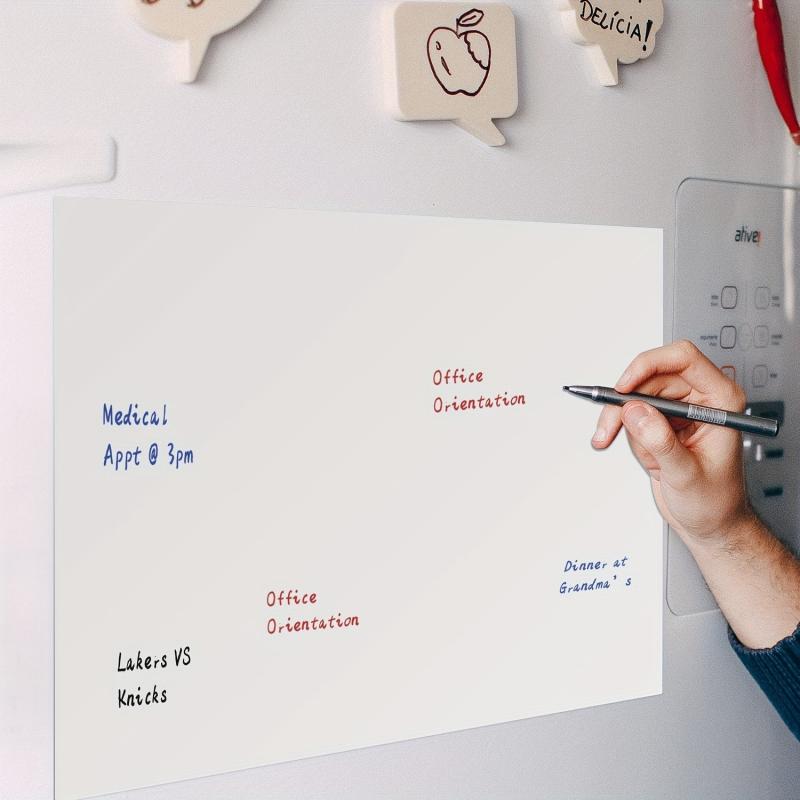 DELÍCIA!
ative!
Office
Orientation
Medical
Appt @ 3pm
Dinner at
Grandma's
Office
Orientation
Lakers VS
Knicks